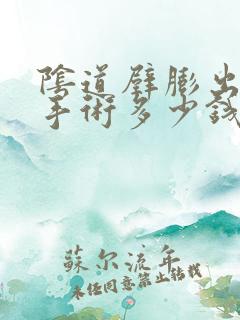 陰道壁膨出
手術多少錢
蘇尔流年
未经同意禁止转载